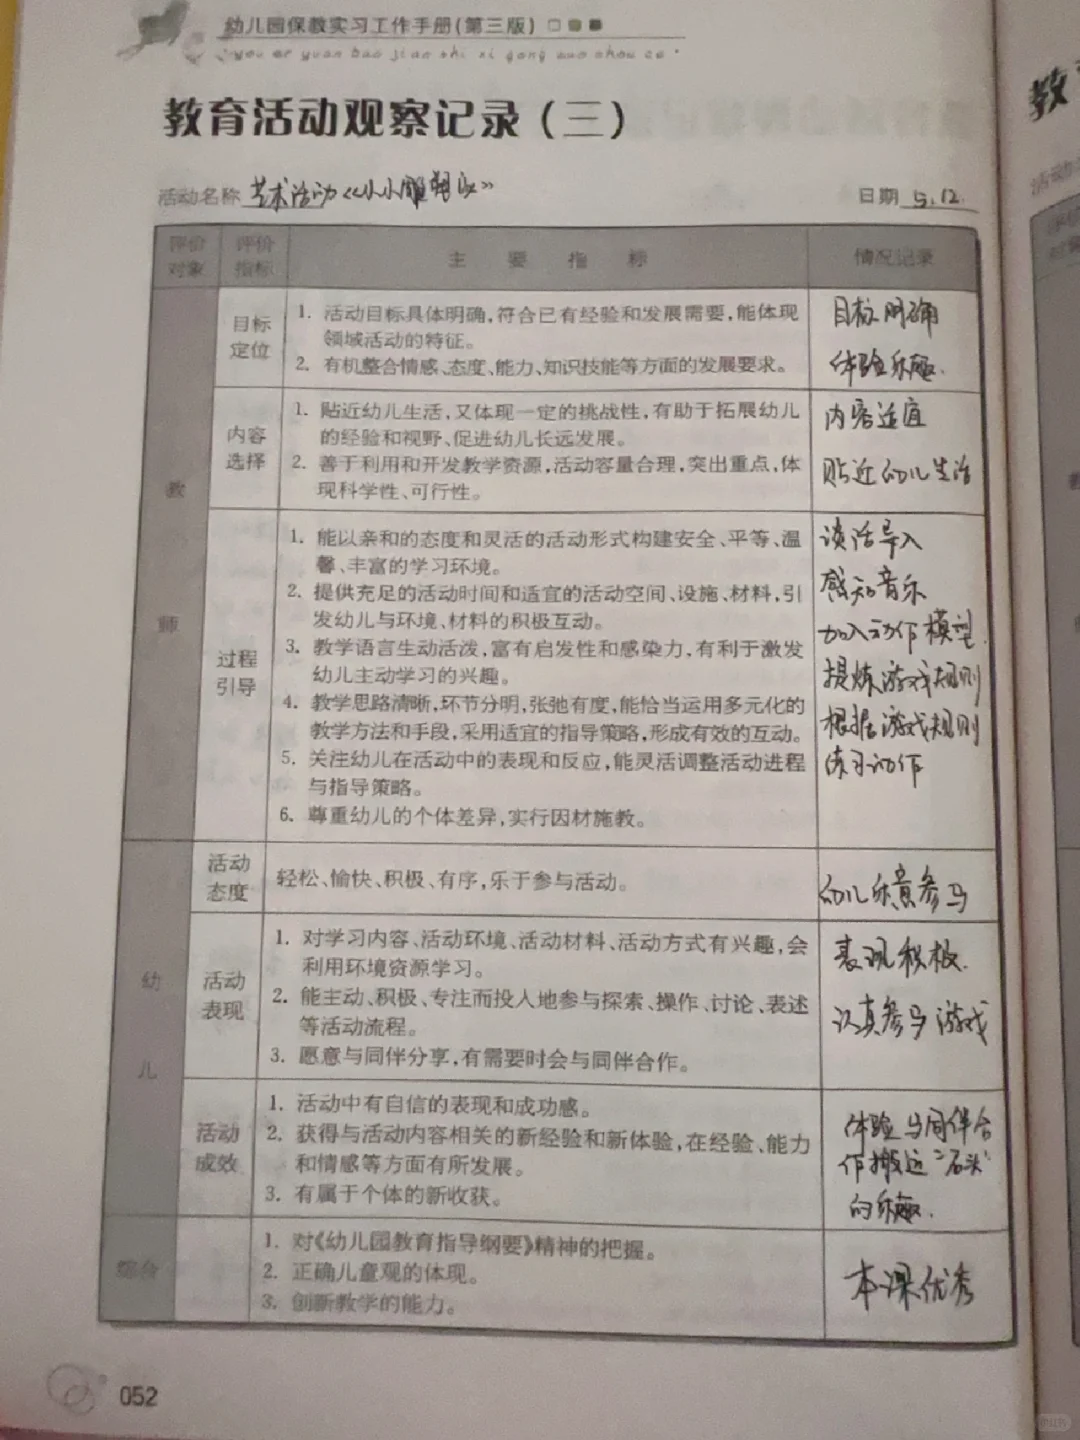 幼儿园保教实习工作手册(第三版)
教育活动观察记录(三)
活动名称 艺术活动《小小雕塑家》 日期 5.12.
评价对象 评价指标 主要指标 情况记录
教师
目标定位
1. 活动目标具体明确,符合已有经验和发展需要,能体现
领域活动的特征。
2. 有机整合情感、态度、能力、知识技能等方面的发展要求。
目标明确
体验乐趣.
内容选择
1. 贴近幼儿生活,又体现一定的挑战性,有助于拓展幼儿
的经验和视野、促进幼儿长远发展。
2. 善于利用和开发教学资源,活动容量合理,突出重点,体
现科学性、可行性。
内容适宜
贴近幼儿生活
过程引导
1. 能以亲和的态度和灵活的活动形式构建安全、平等、温
馨、丰富的学习环境。
2. 提供充足的活动时间和适宜的活动空间、设施、材料,引
发幼儿与环境、材料的积极互动。
3. 教学语言生动活泼,富有启发性和感染力,有利于激发
幼儿主动学习的兴趣。
4. 教学思路清晰,环节分明,张弛有度,能恰当运用多元化的
教学方法和手段,采用适宜的指导策略,形成有效的互动。
5. 关注幼儿在活动中的表现和反应,能灵活调整活动进程
与指导策略。
6. 尊重幼儿的个体差异,实行因材施教。
谈话导入
感知音乐
加入动作模型.
提炼游戏规则
根据游戏规则
练习动作
幼儿
活动态度
轻松、愉快、积极、有序,乐于参与活动。
幼儿乐意参与
活动表现
1. 对学习内容、活动环境、活动材料、活动方式有兴趣,会
利用环境资源学习。
2. 能主动、积极、专注而投入地参与探索、操作、讨论、表述
等活动流程。
3. 愿意与同伴分享,有需要时会与同伴合作。
表现积极.
认真参与游戏
活动成效
1. 活动中有自信的表现和成功感。
2. 获得与活动内容相关的新经验和新体验,在经验、能力
和情感等方面有所发展。
3. 有属于个体的新收获。
体验与同伴合
作搬运“石头”
的乐趣.
综合
1. 对《幼儿园教育指导纲要》精神的把握。
2. 正确儿童观的体现。
3. 创新教学的能力。
本课优秀
052